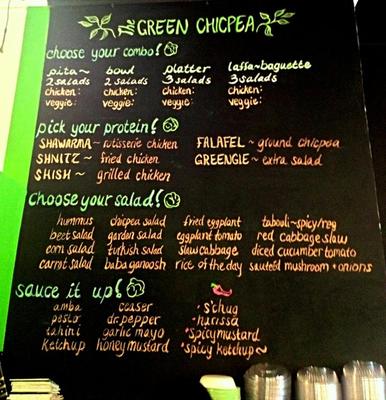 the GREEN CHICPEA
choose your combo!
pita~ bowl platter laffa~baguette
2 salads 2 salads 3 salads 3 salads
chicken: chicken: chicken: chicken:
veggie: veggie: veggie: veggie:
pick your protein!
SHAWARMA~ rotisserie chicken FALAFEL~ ground chicpea
SHNITZ~ fried chicken GREENGIE~ extra salad
SHISH~ grilled chicken
choose your salad!
hummus chicpea salad fried eggplant tabouli~spicy/reg
beet salad garden salad eggplant tomato red cabbage slaw
corn salad turkish salad slaw cabbage diced cucumber tomato
carrot salad baba ganoosh rice of the day sauteéd mushroom + onions
sauce it up!
amba ceaser s'chug
pesto dr. pepper harissa
tahini garlic mayo spicy mustard
ketchup honey mustard spicy ketchup~